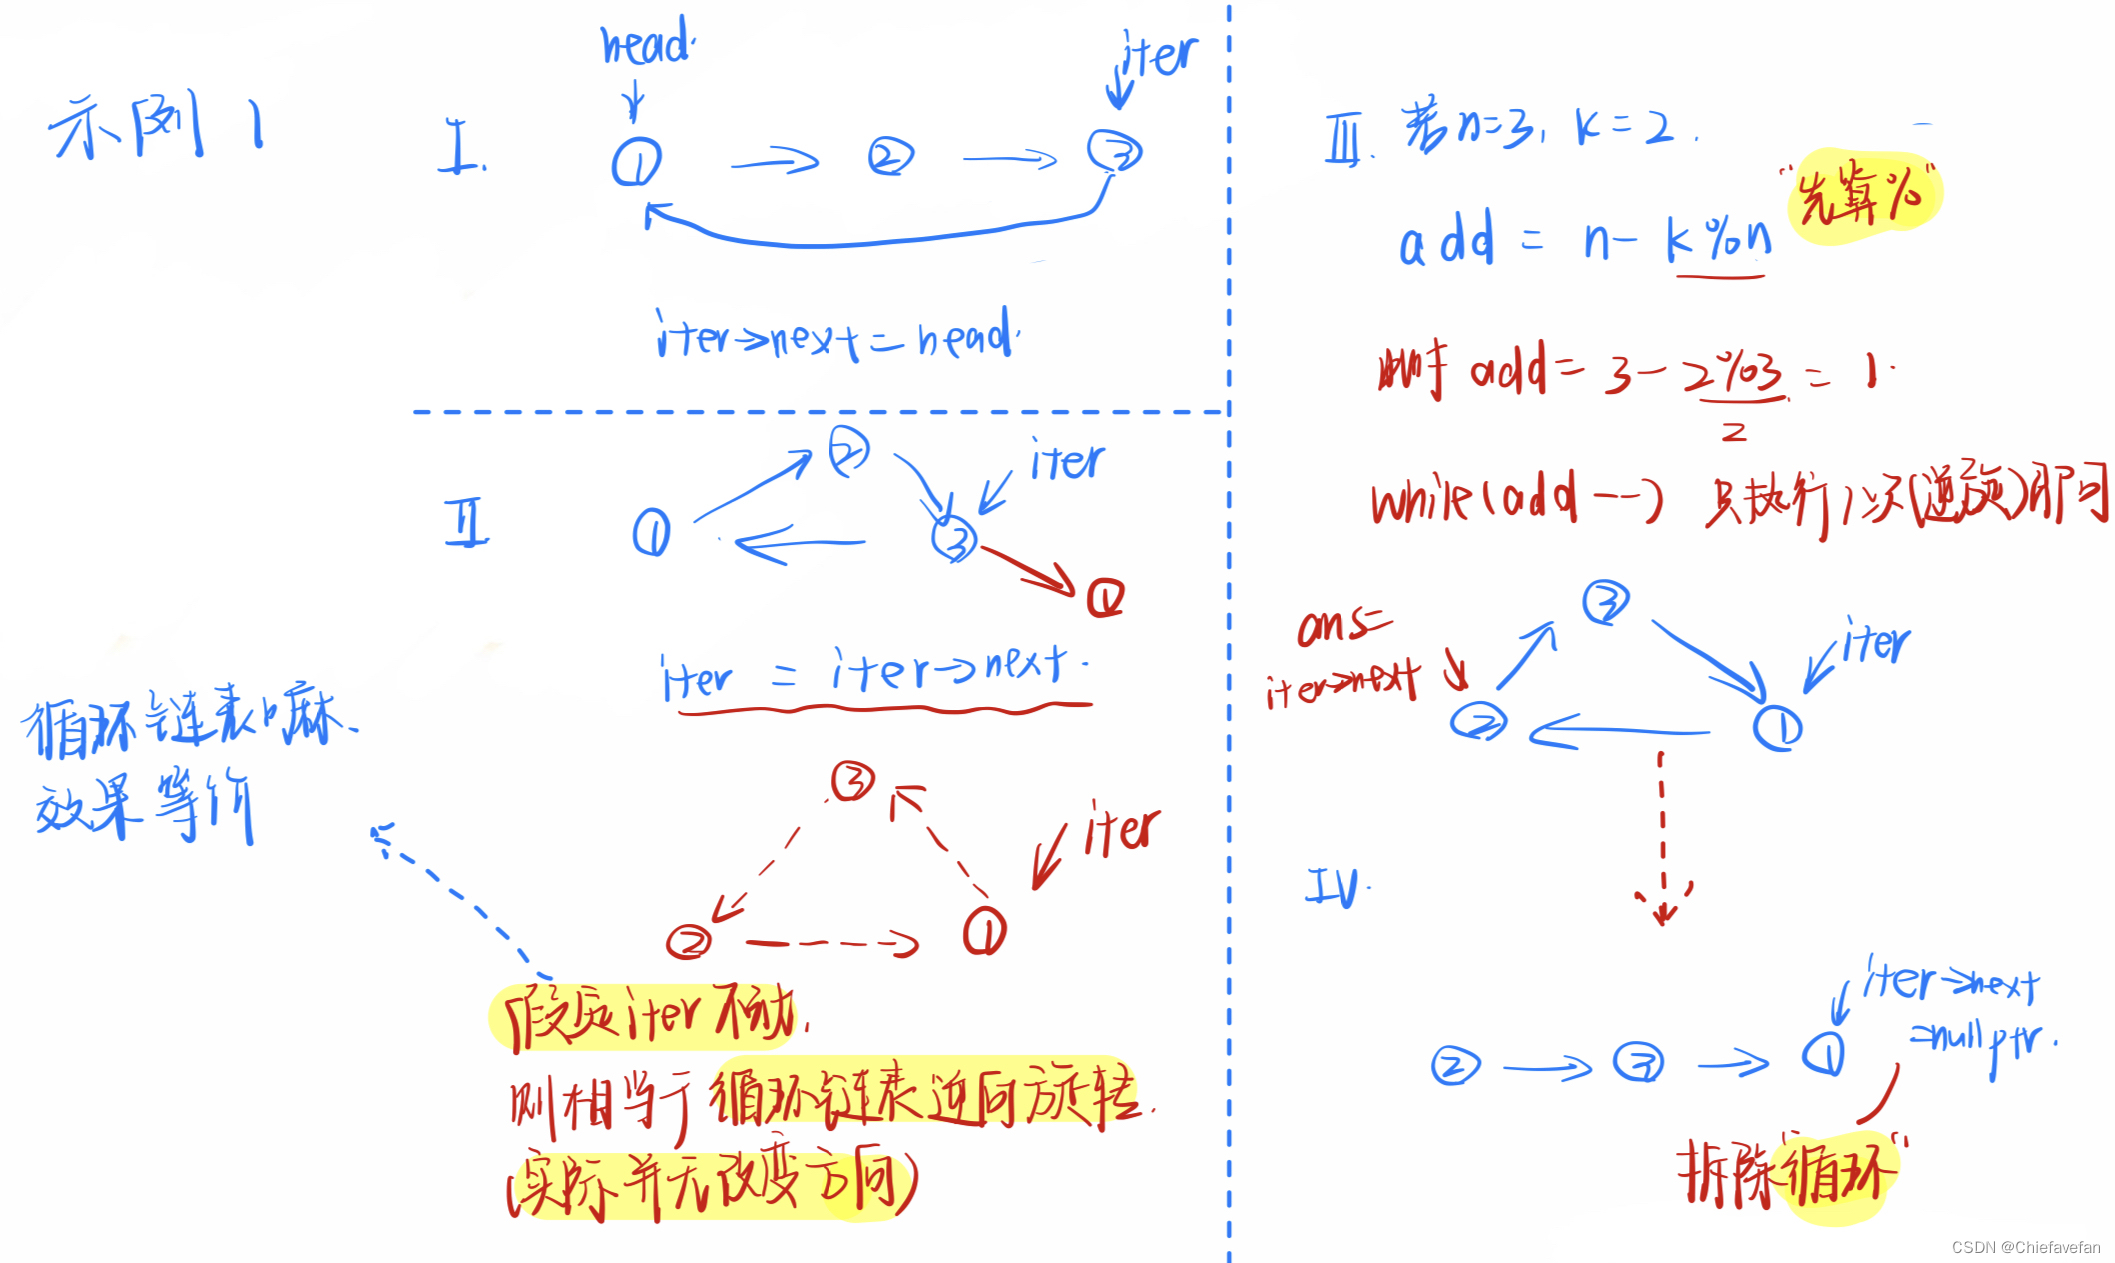 示例1
I.
head.
iter
① → ② → ③
iter->next = head.
II
②
iter
① ③
①
iter = iter->next.
循环链表嘛、
效果等价
③
iter
② ①
假定iter不动,
则相当于循环链表逆向旋转.
(实际并无改变方向)
III. 若n=3, k=2.
"先算%"
add = n - k%n
add = 3 - 2%3 = 1.
2
while(add--) 只执行1次(逆旋)即可
ans=
iter->next
③
iter
② ①
IV.
iter->next
=nullptr.
② → ③ → ①
拆除"循环"
CSDN @Chiefavefan